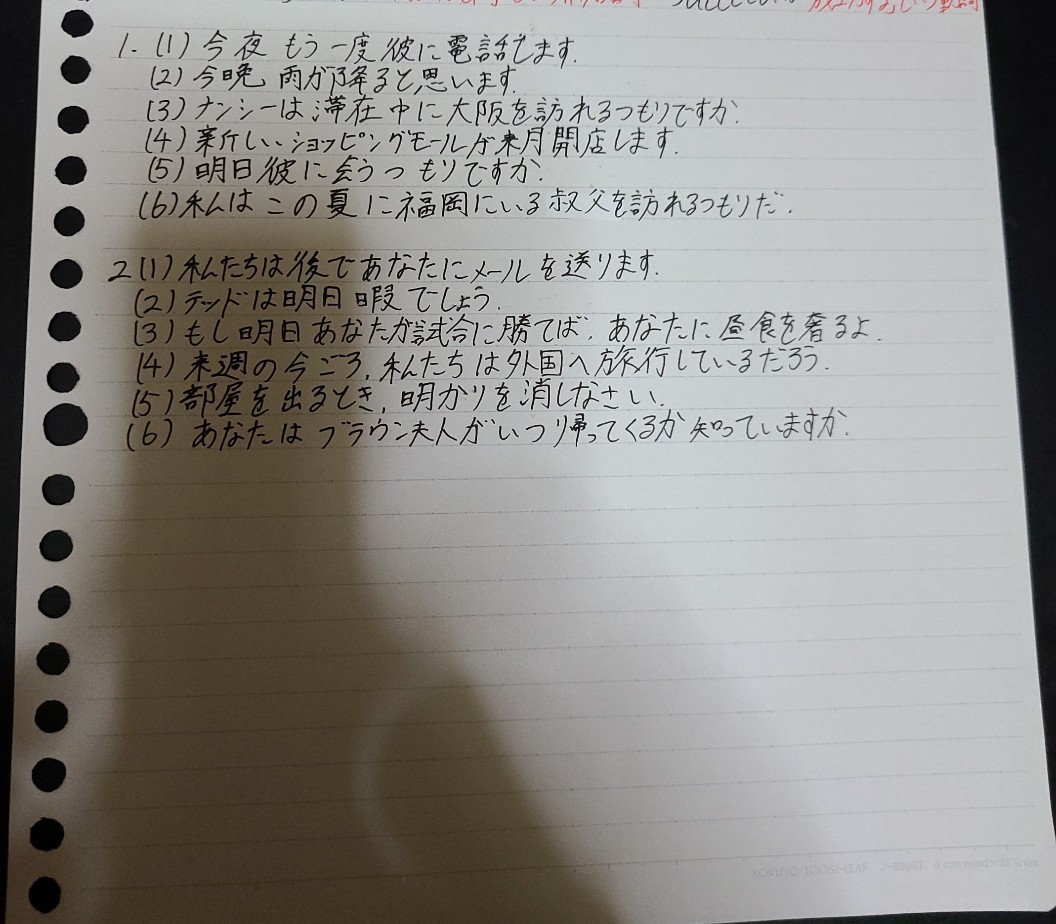 1. (1) 今夜もう一度彼に電話します.
(2) 今晩雨が降ると思います.
(3) ナンシーは滞在中に大阪を訪れるつもりですか.
(4) 新しいショッピングモールが来月開店します.
(5) 明日彼に会うつもりですか.
(6) 私はこの夏に福岡にいる叔父を訪れるつもりだ.
2 (1) 私たちは後であなたにメールを送ります.
(2) テッドは明日暇でしょう.
(3) もし明日あなたが試合に勝てば, あなたに昼食を奢るよ.
(4) 来週の今ごろ, 私たちは外国へ旅行しているだろう.
(5) 部屋を出るとき, 明かりを消しなさい.
(6) あなたはブラウン夫人がいつ帰ってくるか知っていますか.
KOKUYO LOOSE-LEAF